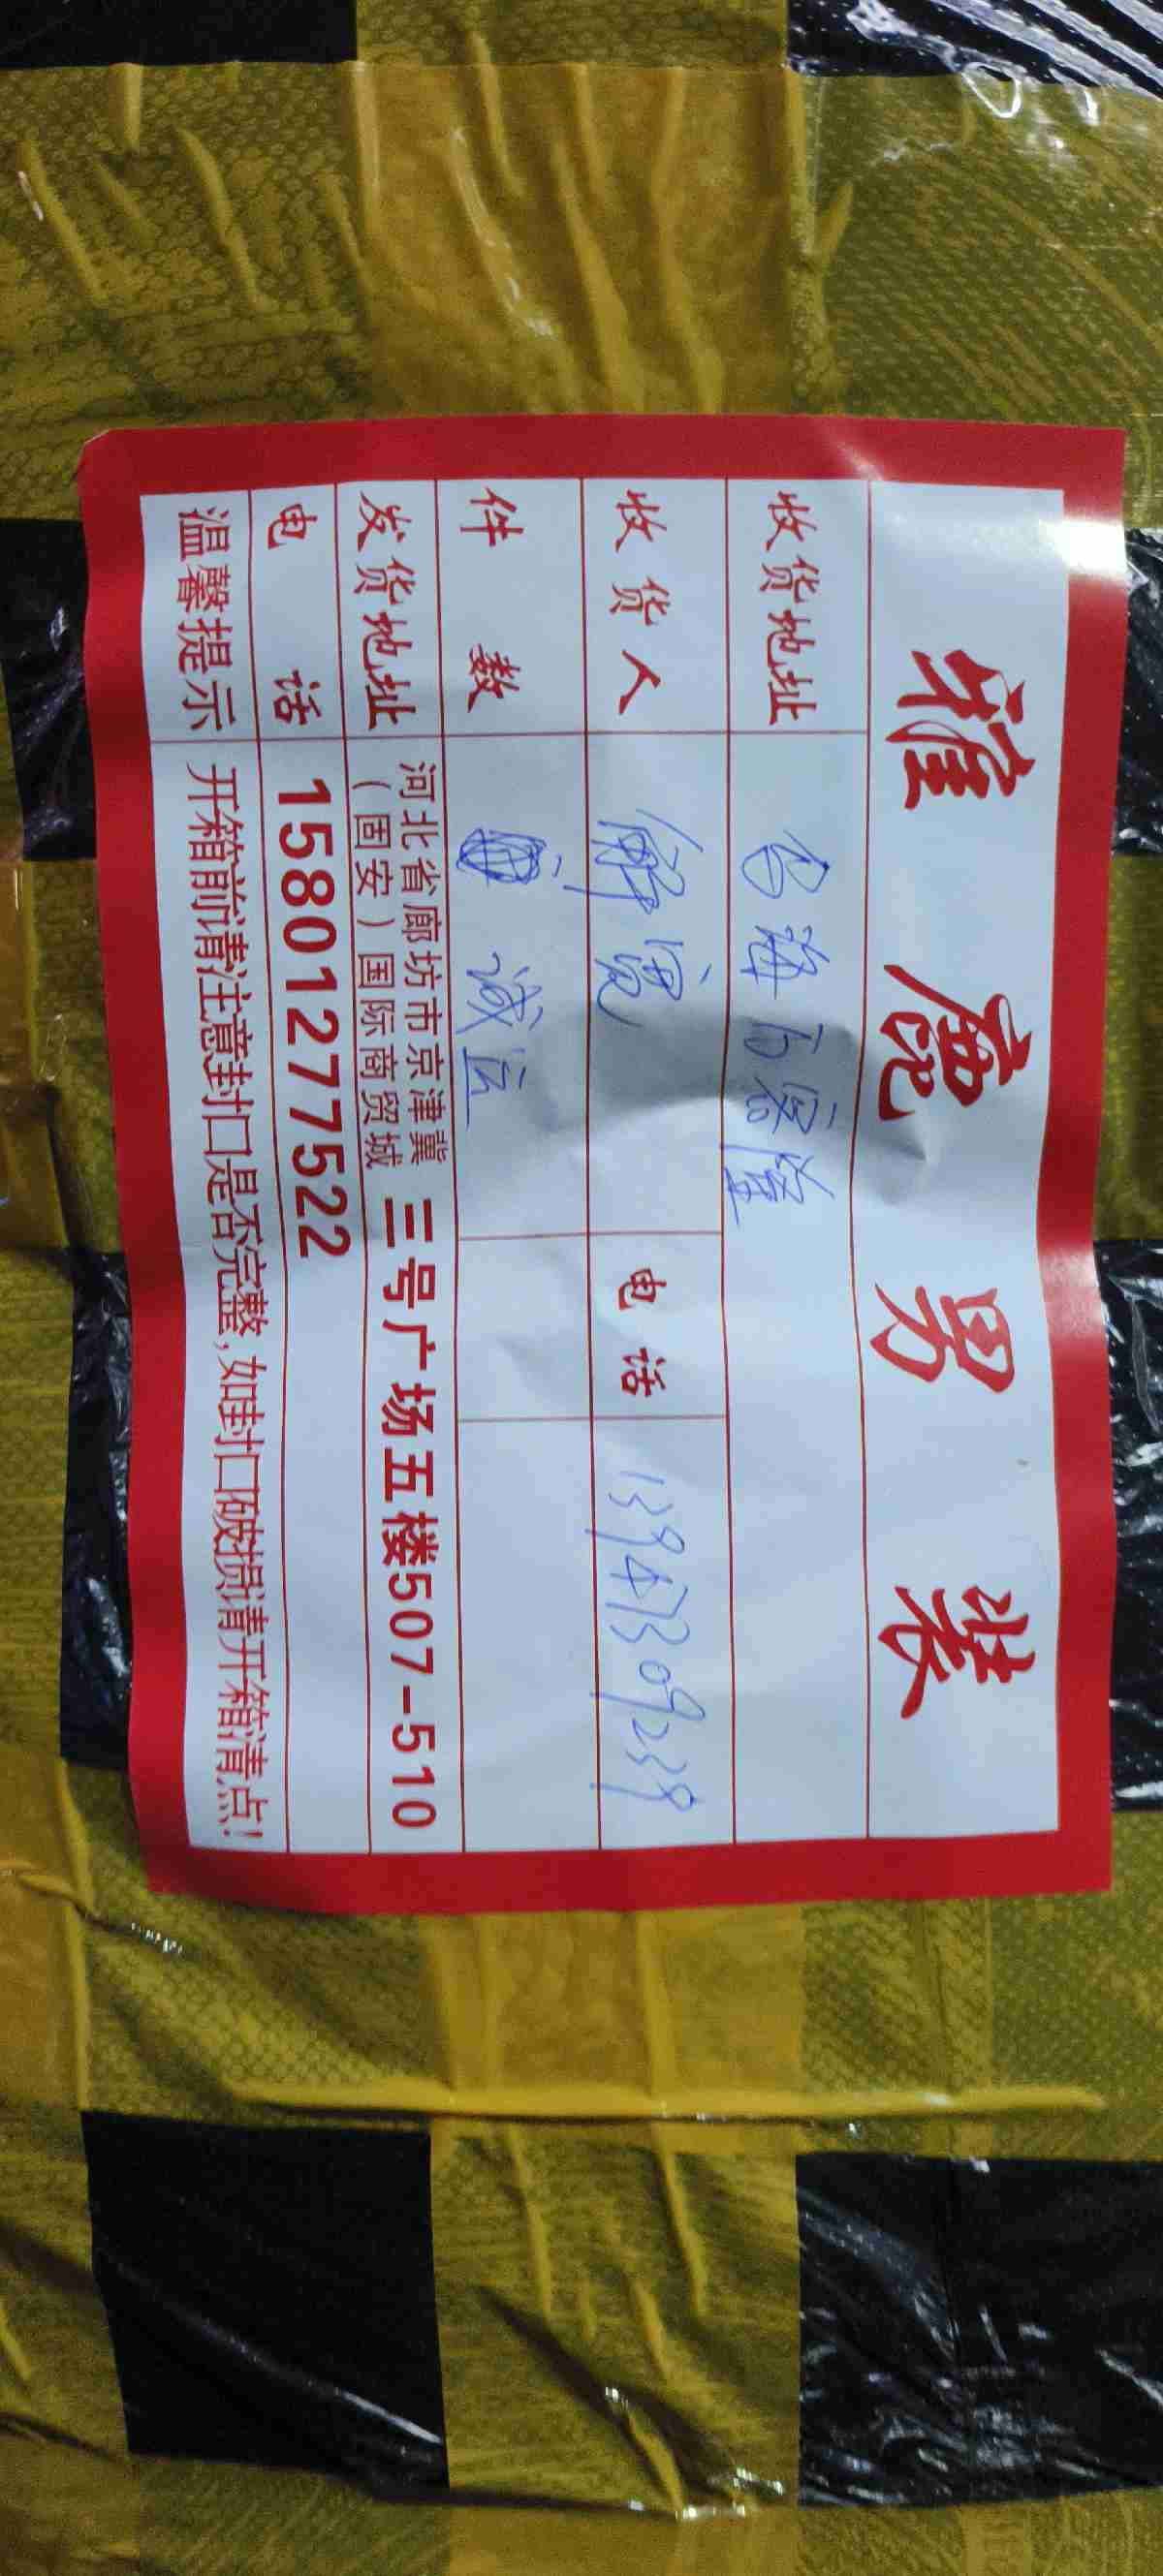 雅鹿男装
收货地址 乌海百客隆
收货人 解宽 电话 13947309239
件数 诚立
发货地址 河北省廊坊市京津冀
（固安）国际商贸城 三号广场五楼507-510
电话 15801277522
温馨提示 开箱前请注意封口是否完整,如封口破损请开箱清点!